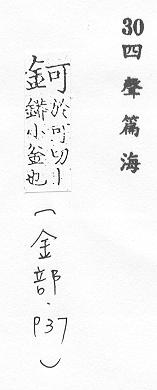 30四聲篇海
鈳
於可切丨
䥈小釜也
(金部．P37)